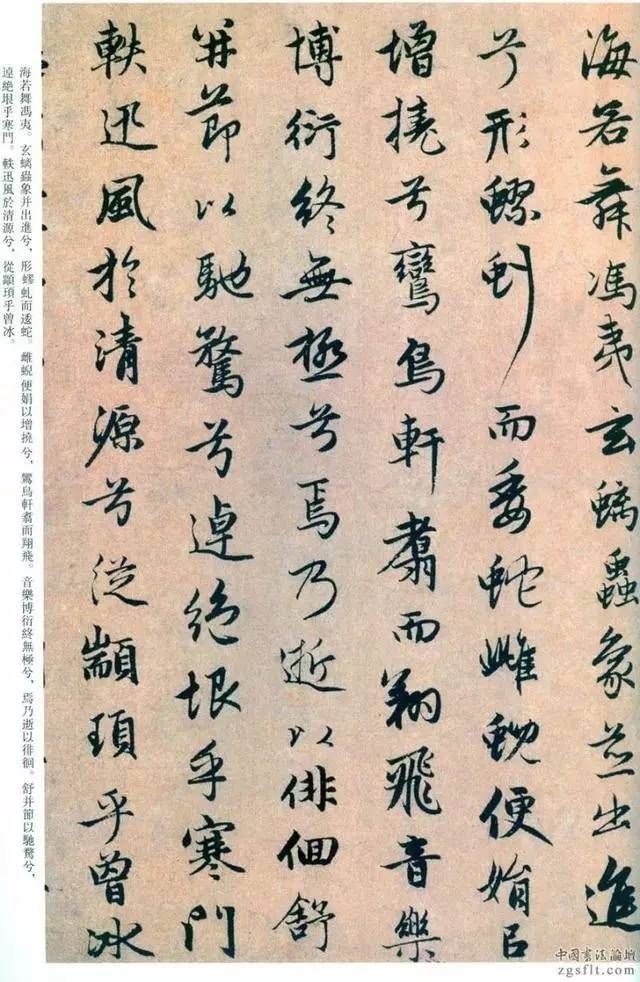 海若舞馮夷玄螭蟲象並出進
兮形蟉虯而委蛇雌蜺便娟以
增撓兮鸞鳥軒翥而翔飛音樂
博衍終無極兮焉乃逝以徘徊舒
并節以馳騖兮逴絕垠乎寒門
軼迅風於清源兮從顓頊乎曾冰
海若舞馮夷。玄螭蟲象并出進兮，形蟉虬而逶蛇。雌蜺便娟以增撓兮，鸞鳥軒翥而翔飛。音樂博衍終無極兮，焉乃逝以徘徊。舒并節以馳騖兮，
逴絕垠乎寒門。軼迅風於清源兮，從顓頊乎曾冰。
中國書法論壇
zgsflt.com